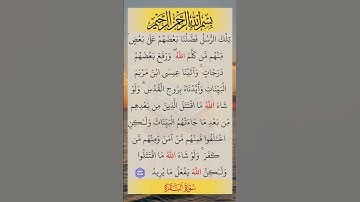 بِسْمِ اللَّهِ الرَّحْمَٰنِ الرَّحِيمِ
تِلْكَ الرُّسُلُ فَضَّلْنَا بَعْضَهُمْ عَلَىٰ بَعْضٍ
مِنْهُم مَّن كَلَّمَ اللَّهُ وَرَفَعَ بَعْضَهُمْ
دَرَجَاتٍ وَآتَيْنَا عِيسَى ابْنَ مَرْيَمَ
الْبَيِّنَاتِ وَأَيَّدْنَاهُ بِرُوحِ الْقُدُسِ وَلَوْ
شَاءَ اللَّهُ مَا اقْتَتَلَ الَّذِينَ مِن بَعْدِهِم
مِّن بَعْدِ مَا جَاءَتْهُمُ الْبَيِّنَاتُ وَلَٰكِنِ
اخْتَلَفُوا فَمِنْهُم مَّنْ آمَنَ وَمِنْهُم مَّن
كَفَرَ وَلَوْ شَاءَ اللَّهُ مَا اقْتَتَلُوا
وَلَٰكِنَّ اللَّهَ يَفْعَلُ مَا يُرِيدُ
سُورَةُ الْبَقَرَةِ